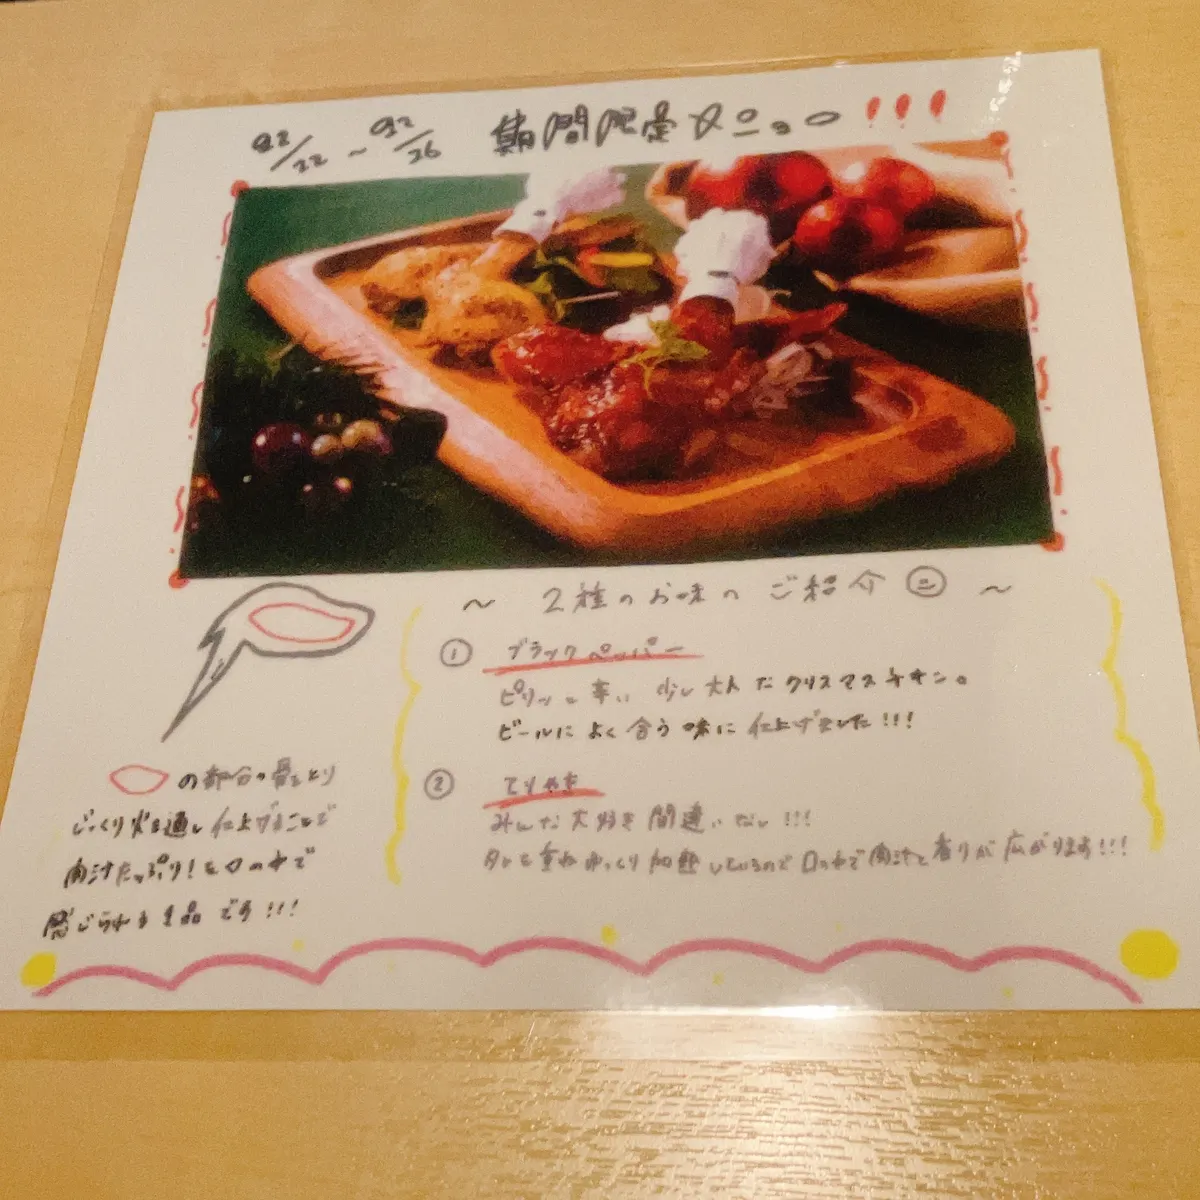 12/22 ～ 12/26 期間限定メニュー!!!
～ 2種のお味の ご紹介 ～
① ブラックペッパー
ピリッと辛い 少し大人なクリスマスチキン。
ビールによく合う味に仕上げました!!!
② てりやき
みんな大好き 間違いなし!!!
タレを重ねゆっくり加熱しているので口の中で肉汁と香りが広がります!!!
の部分の骨をとり
じっくり火を通し仕上げることで
肉汁たっぷり!を口の中で
感じられる1品です!!!